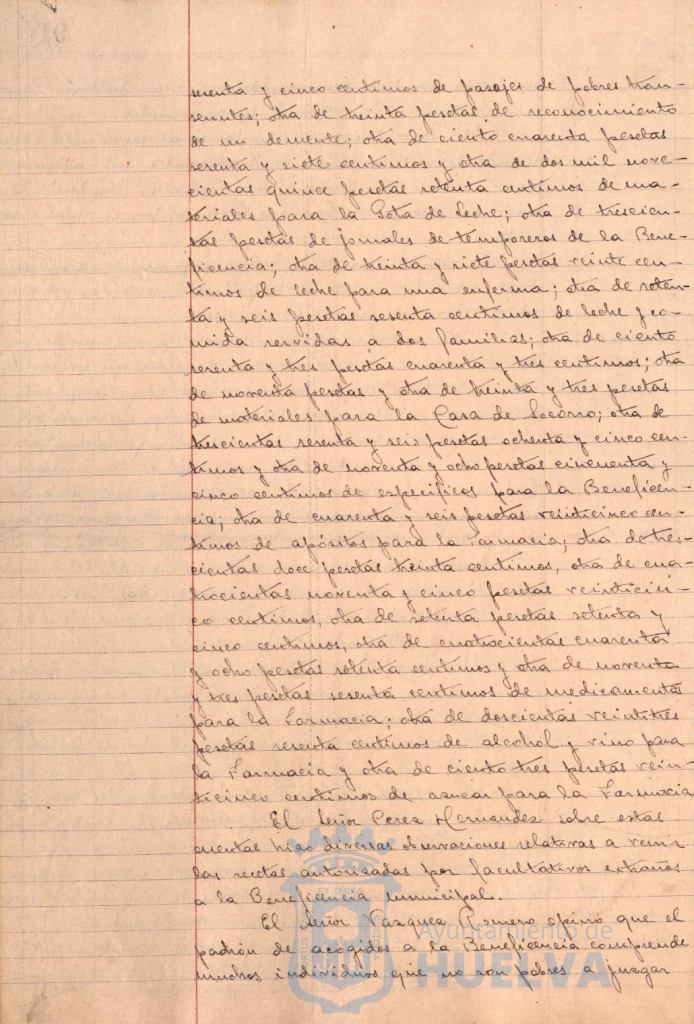 sesenta y cinco centimos de pasajes de pobres tran-
seuntes; otra de treinta pesetas de reconocimiento
de un demente; otra de ciento cuarenta pesetas
sesenta y siete centimos y otra de dos mil nove-
cientas quince pesetas setenta centimos de ma-
teriales para la Gota de Leche; otra de trescien-
tas pesetas de jornales de temporeros de la Bene-
ficencia; otra de treinta y siete pesetas veinte cen-
timos de leche para una enferma; otra de seten-
ta y seis pesetas sesenta centimos de leche y co-
mida servidas a dos familias; otra de ciento
sesenta y tres pesetas cuarenta y tres centimos; otra
de noventa pesetas y otra de treinta y tres pesetas
de materiales para la Casa de Socorro; otra de
trescientas sesenta y seis pesetas ochenta y cinco cen-
timos y otra de noventa y ocho pesetas cincuenta y
cinco centimos de especificos para la Beneficen-
cia; otra de cuarenta y seis pesetas veinticinco cen-
timos de apósitos para la Farmacia; otra de tres-
cientas doce pesetas treinta centimos, otra de cua-
trocientas noventa y cinco pesetas veinticin-
co centimos, otra de setenta pesetas setenta y
cinco centimos, otra de cuatrocientas cuarenta
y ocho pesetas setenta centimos y otra de noventa
y tres pesetas sesenta centimos de medicamentos
para la Farmacia; otra de doscientas veintitres
pesetas sesenta centimos de alcohol y vino para
la Farmacia y otra de ciento tres pesetas vein-
ticinco centimos de azucar para la Farmacia
El Señor Perez Hernandez sobre estas
cuentas hizo diversas observaciones relativas a venir
las recetas autorizadas por facultativos extraños
a la Beneficencia municipal.
El Señor Vazquez Romero opinó que el
padrón de acogidos a la Beneficencia comprende
muchos individuos que no son pobres a juzgar
Ayuntamiento de
HUELVA